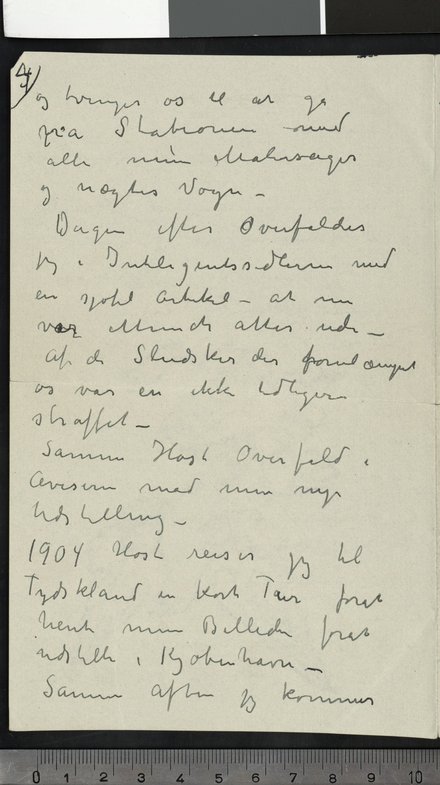 4)
og tvinges os til at gå
fra Stationen med
alle mine Malersager
og nægtes Vogn –
Dagen efter Overfaldes
jeg i Intelligentssedlerne med
en sjofel Artikel – at nu
var Munch atter ude –
af de Sludsker der
os var en ikke tidligere
straffet –
Samme Høst Overfald i
Aviserne mod min nye
Udstilling –
1904 Høst reiser jeg til
Tydskland en kort Tur forat
hente mine Billeder forat
udstille i Kjøbenhavn –
Samme Aften jeg kommer
0 1 2 3 4 5 6 7 8 9 10